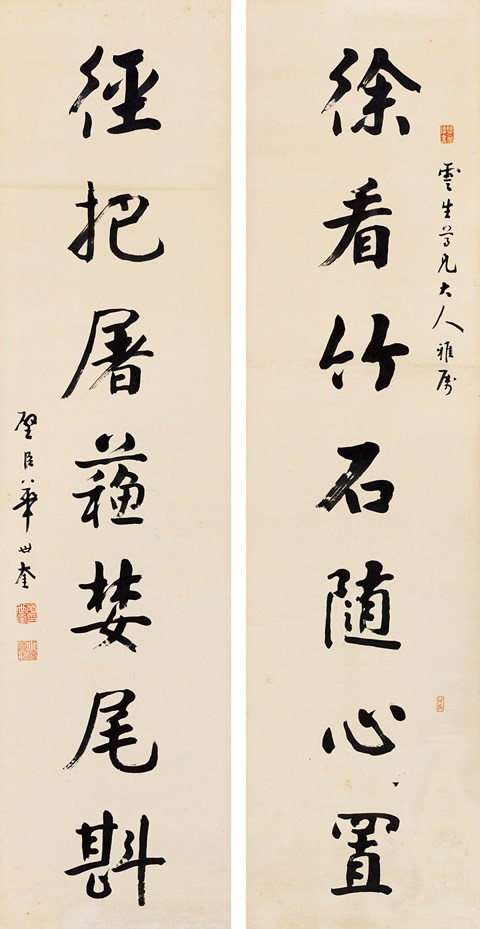 雲生尊兄大人雅属
徐看竹石随心置
徑把屠蘓婪尾斟
璧臣華世奎